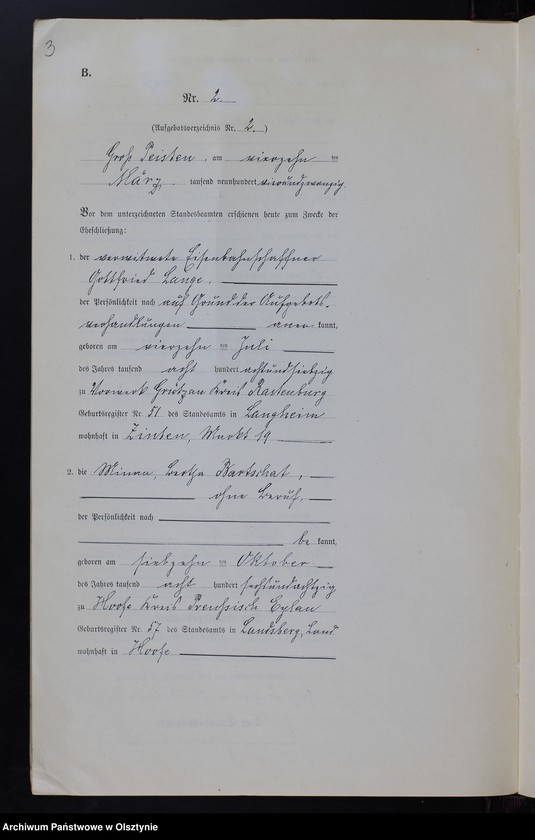 3
B.
Nr. 2.
(Aufgebotsverzeichnis Nr. 2.)
Groß Peisten, am vierzehn ten
März tausend neunhundert vierundzwanzig.
Vor dem unterzeichneten Standesbeamten erschienen heute zum Zwecke der
Eheschließung:
1. der verwitwete Eisenbahnschaffner
Gottfried Lange,
der Persönlichkeit nach auf Grund der Aufgebots-
verhandlungen aner kannt,
geboren am vierzehn ten Juli
des Jahres tausend acht hundert achtundsiebzig
zu Vorwerk Kreis Rastenburg
Geburtsregister Nr. 51 des Standesamts in Langheim
wohnhaft in Zinten, Markt 19
2. die Minna, Bertha Bartschat,
ohne Beruf,
der Persönlichkeit nach
be kannt,
geboren am siebzehn ten Oktober
des Jahres tausend acht hundert sechsundachtzig
zu Hoofe Kreis Preußisch Eylau
Geburtsregister Nr. 57 des Standesamts in Landsberg, Land
wohnhaft in Hoofe
Archiwum Państwowe w Olsztynie